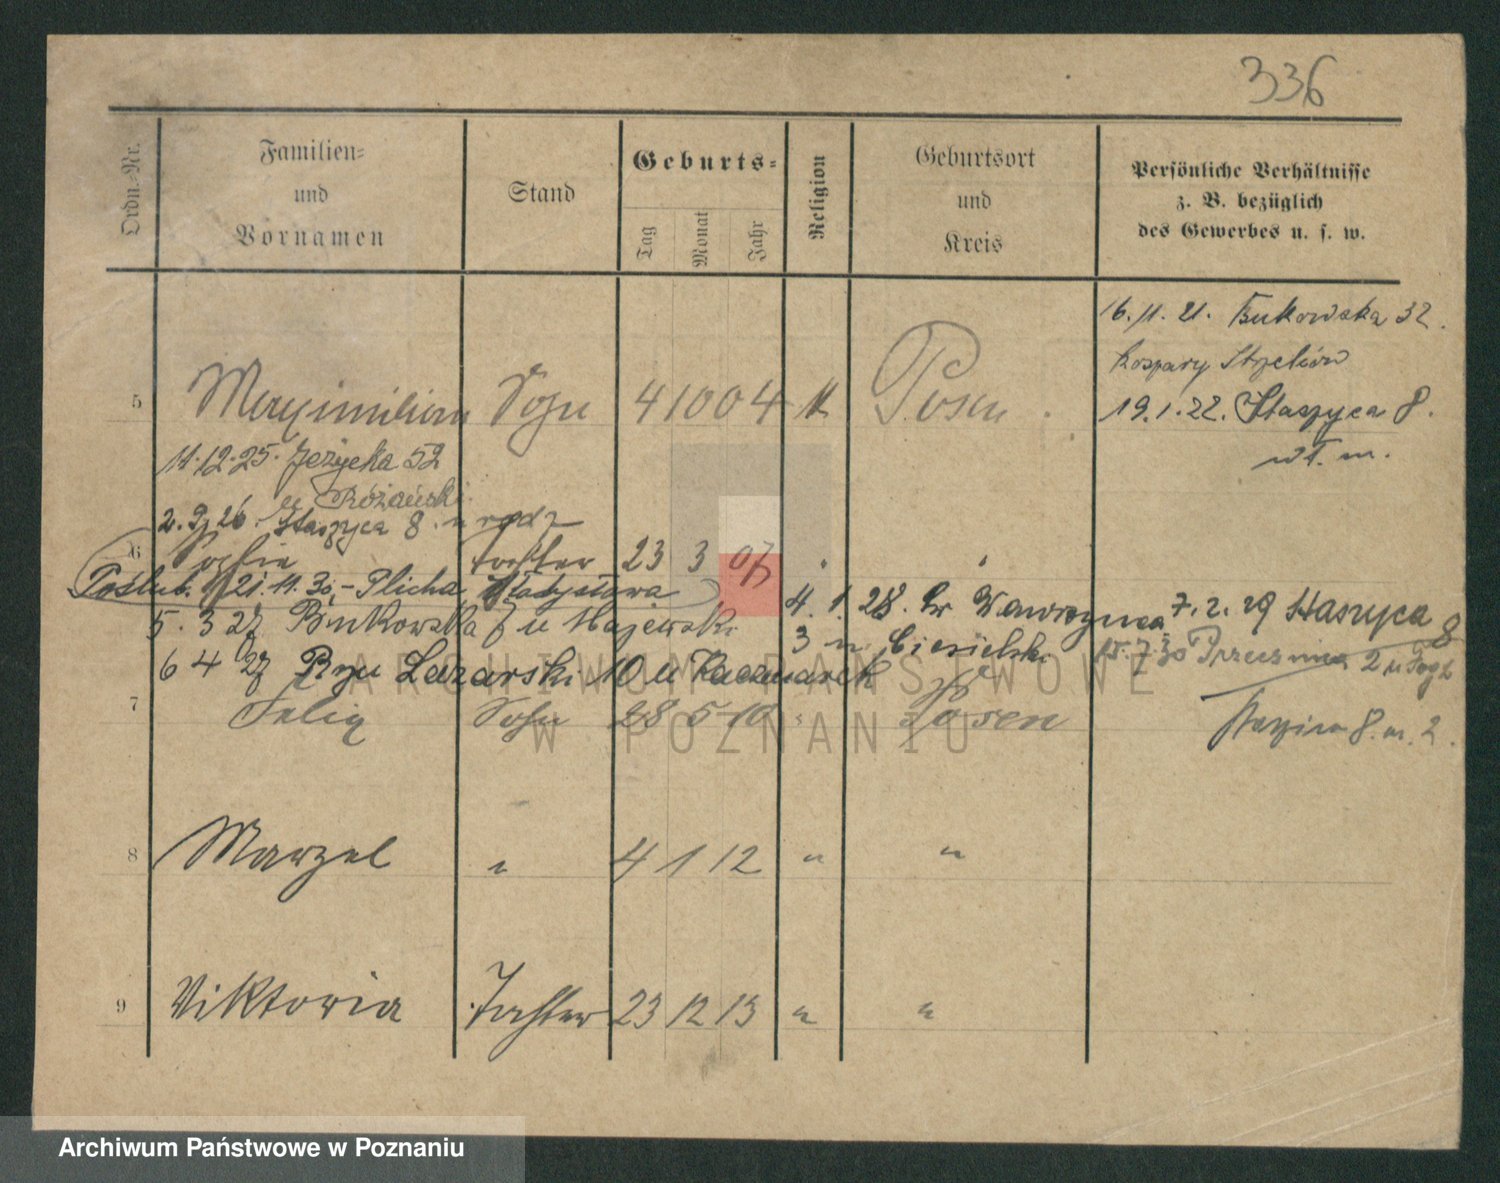 336
Ordn.-Nr.
Familien-
und
Vornamen
Stand
Geburts-
Tag
Monat
Jahr
Religion
Geburtsort
und
Kreis
Persönliche Verhältnisse
z. B. bezüglich
des Gewerbes u. s. w.
16.11.21. Bukowska 32.
koszary Strzelców
5 Maximilian Sohn 4 10 04 K Posen
19.1.22. Staszyca 8.
11.12.25. Jeżycka 52
u Różański
2. 9 26. Staszyca 8. u rodz
6 Sophie Tochter 23 3 07 "
Poślub. 21.11.30,- Plicha Władysława
4.1.28. Św Wawrzyńca
7.2.29 Staszyca 8
5. 3 27 Bukowska 7 u Majewski
3 u Ciesielski
15.7.30 2 u
6 4 27 Lazarski 10 u Kaczmarek
7 Feliz Sohn 28 5 10 " Posen
8. m. 2.
8 Marzel " 4 1 12 " "
9 Viktoria Tochter 23 12 13 " "
ARCHIWUM PAŃSTWOWE
W POZNANIU
Archiwum Państwowe w Poznaniu